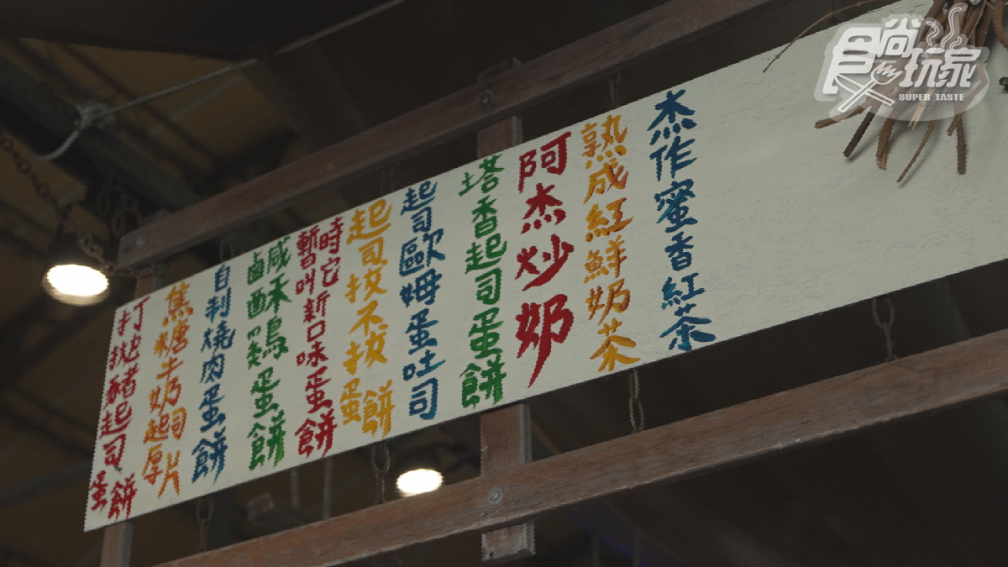 食尚玩家
SUPER TASTE
杰作蜜香紅茶
熟成紅鮮奶茶
阿杰炒奶
塔香起司蛋餅
起司歐姆蛋吐司
起司拔不拔蛋餅
暫時叫它新口味蛋餅
鹹酥鷄蛋餅
自制燒肉蛋餅
焦糖牛奶起司厚片
打拋豬起司蛋餅